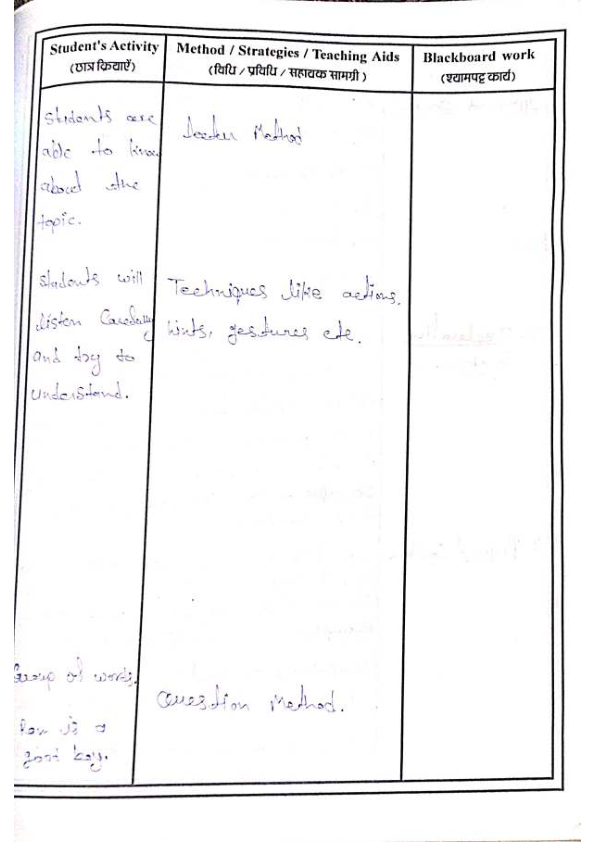 Student's Activity
(छात्र क्रियाएँ)
Method / Strategies / Teaching Aids
(विधि / प्रविधि / सहायक सामग्री)
Blackboard work
(श्यामपट्ट कार्य)
Students are
able to know
about the
topic.
Method
Students will
listen Carefully
and try to
understand.
Techniques like actions,
hints, gestures etc.
Group of words.
Ram is a
good boy.
Question Method.